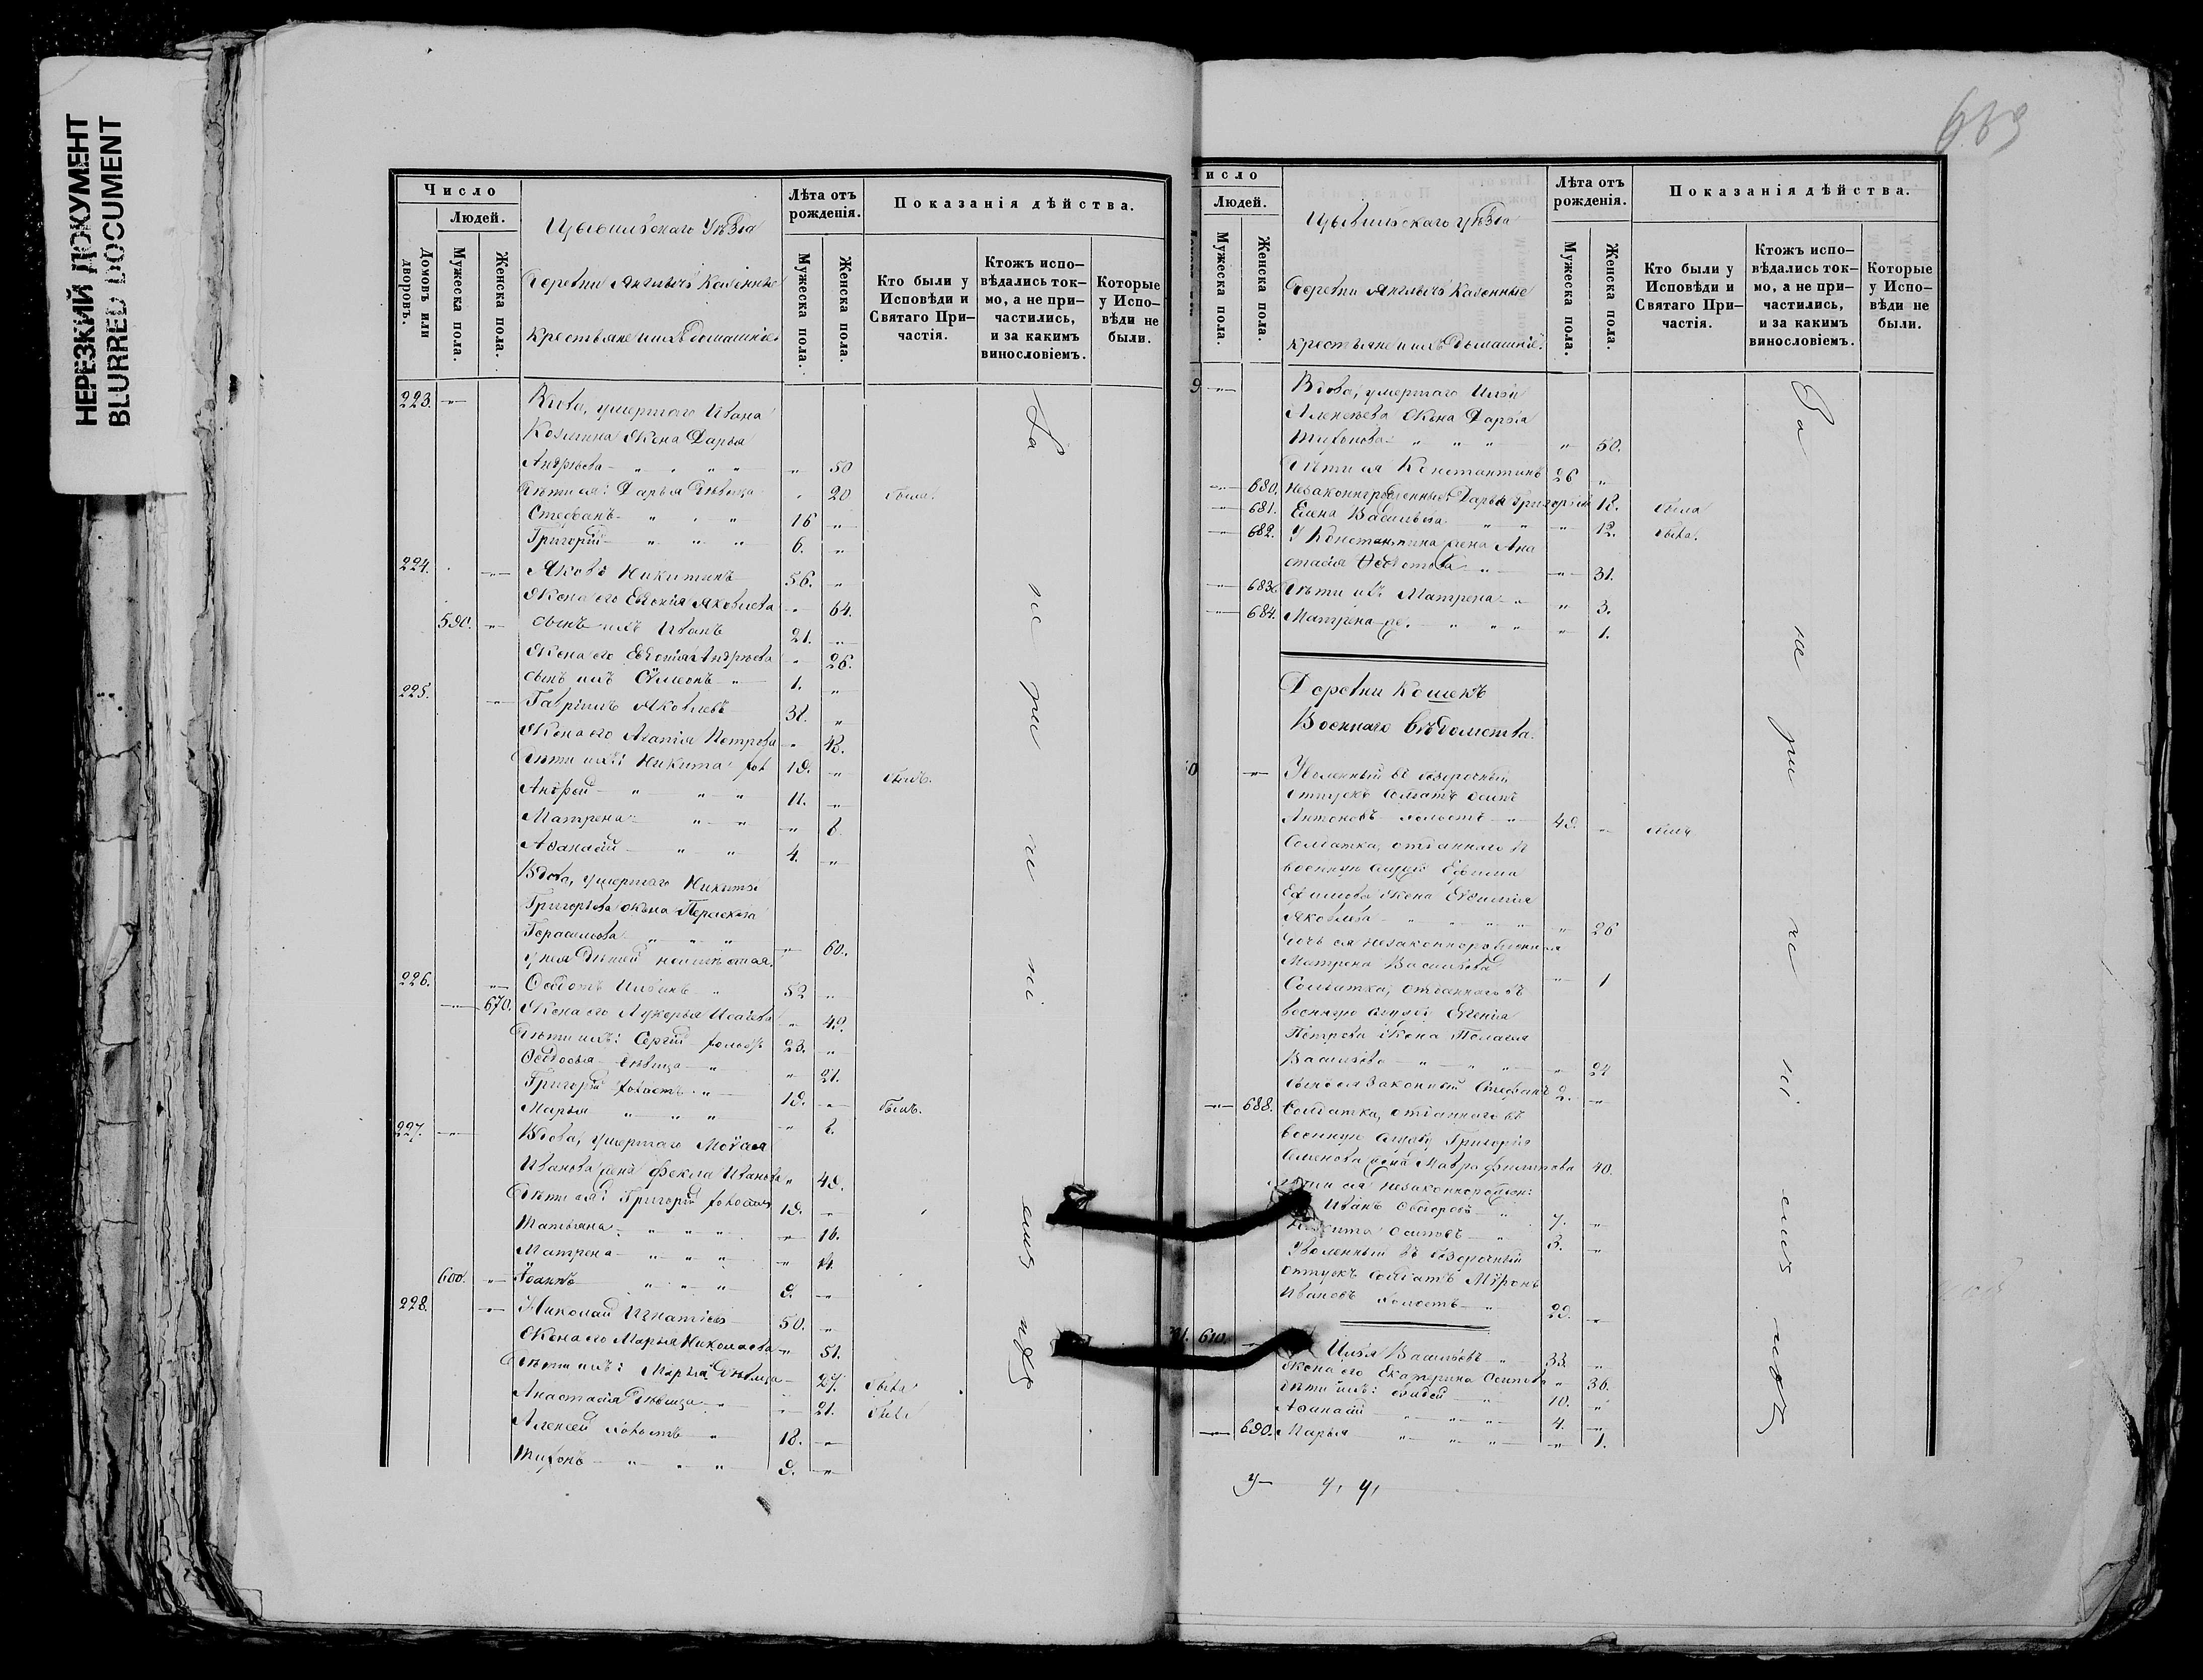 НЕРЕЗКИЙ ДОКУМЕНТ
BLURRED DOCUMENT
Число
Людей.
Домовъ или дворовъ.
Мужеска пола.
Женска пола.
Цывильскаго Уѣзда
Деревни Янгличъ Казенные
Крестьяне и ихъ домашніе.
Лѣта отъ рожденія.
Мужеска пола.
Женска пола.
Показанія дѣйства.
Кто были у Исповѣди и Святаго Причастія.
Ктожъ исповѣдались токмо, а не причастились, и за какимъ винословіемъ.
Которые у Исповѣди не были.
223. Вдова, умершаго Ивана
Козмина жена Дарья
Андрѣева 50
Дѣти ея: Дарья дѣвица 20 была.
Стефанъ 16
Григорій 6.
224. Яковъ Никитинъ 56.
Жена его Евдокія Яковлева 64.
590. сынъ ихъ Иванъ 21.
Жена его Евдокія Андрѣева 26.
сынъ ихъ Сѵмеонъ 1.
225. Гавріилъ Яковлевъ 31.
Жена его Агафія Петрова 42.
Дѣти ихъ: Никита хол 19. былъ.
Андрей 11.
Матрена
Аѳанасій 4.
Вдова, умершаго Никиты
Григорьева жена Параскева
Герасимова 60.
у нея дѣтей
226. Ѳедотъ Ильинъ 52
670. Жена его Лукерья Исаева 49.
Дѣти ихъ: Сергій холостъ 23.
Ѳедосья дѣвица 21.
Григорій холостъ 19. былъ.
Марья
227. Вдова, умершаго Моѵсея
Иванова жена Фекла Иванова 49.
Дѣти ея: Григорій холостъ 19.
Татьяна 16.
Матрена
600. Іоаннъ 9.
228. Николай Игнатіевъ 50.
Жена его Марья Николаева 51.
Дѣти ихъ: Марья дѣвица 27. была
Анастасія дѣвица 21. была
Алексей холостъ 18.
Тихонъ 9.
За не
число
Людей.
Мужеска пола.
Женска пола.
Цывильскаго Уѣзда
Деревни Янгличъ Казенные
крестьяне и ихъ домашніе.
Лѣта отъ рожденія.
Мужеска пола.
Женска пола.
Показанія дѣйства.
Кто были у Исповѣди и Святаго Причастія.
Ктожъ исповѣдались токмо, а не причастились, и за какимъ винословіемъ.
Которые у Исповѣди не были.
9 Вдова, умершаго Ильи
Алексѣева жена Дарья
Тихонова 50.
Дѣти ея Константинъ 26
680. Незаконнорожденные: Дарья Григорьева 18. была
681. Елена Васильева 12. была.
682. У Константина жена Ана
стасія Ѳедотова 31.
683. Дѣти ихъ Матрена 3.
684. Матрена же. 1.
Деревни Кошекъ
Военнаго вѣдомства.
Уволенный въ безсрочный
отпускъ солдатъ
Антоновъ холостъ 49. былъ
Солдатка, отданнаго в
военную службу Ефима
Ефимова жена Евѳимія
Яковлева 26
дочь ея незаконнорожденная
Матрена Васильева 1
Солдатка, отданнаго въ
военную службу Евгенія
Петрова жена Пелагея
Васильева 24
сынъ ея законный Стефанъ 2.
688. Солдатка, отданнаго въ
военную службу Григорія
Семенова жена Мавра Филиппова 40.
дѣти ея незаконнорожден:
Иванъ Ѳедоровъ 7.
Никита Осиповъ 3.
Уволенный въ безсрочный
отпускъ солдатъ Мѵронъ
Ивановъ холостъ 29.
610. Илья Васильевъ 33.
Жена его Екатерина Осипова 36.
дѣти ихъ: Ѳадей 10.
Аѳанасій 4.
690. Марья 1.
За не